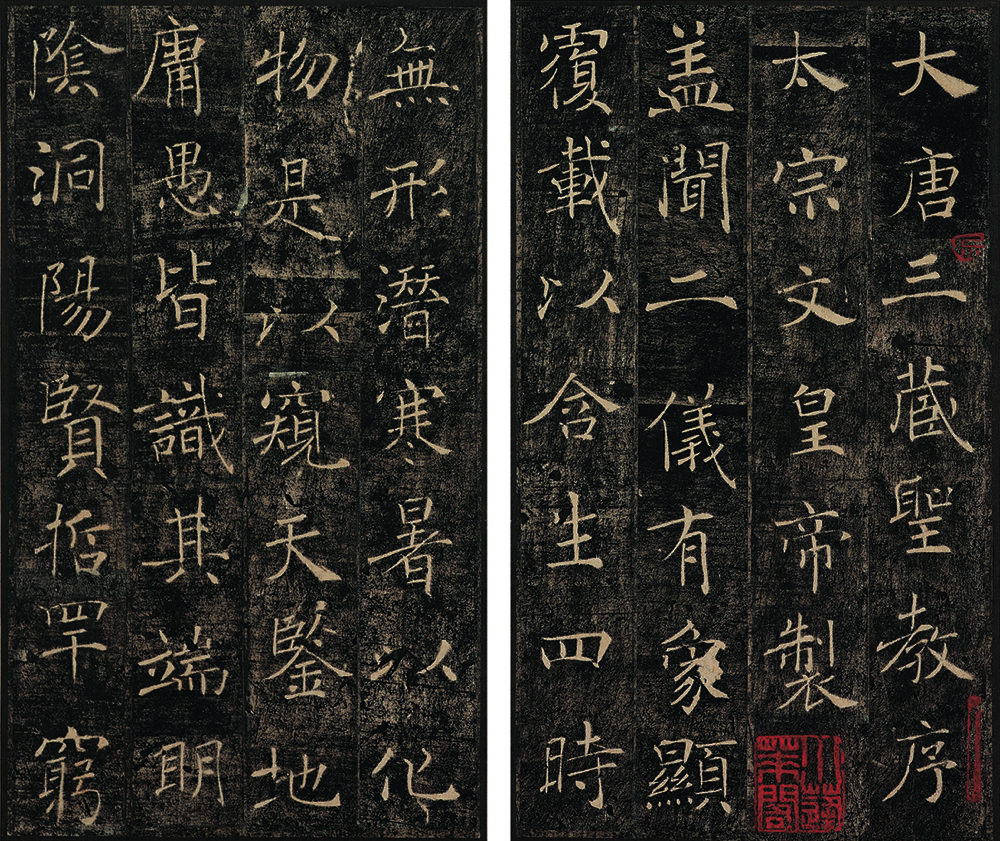 大唐三藏聖教序
太宗文皇帝製
盖聞二儀有象顯
覆載以含生四時
無形潛寒暑以化
物是以窺天鑒地
庸愚皆識其端明
陰洞陽賢哲罕窮
小蓬萊閣